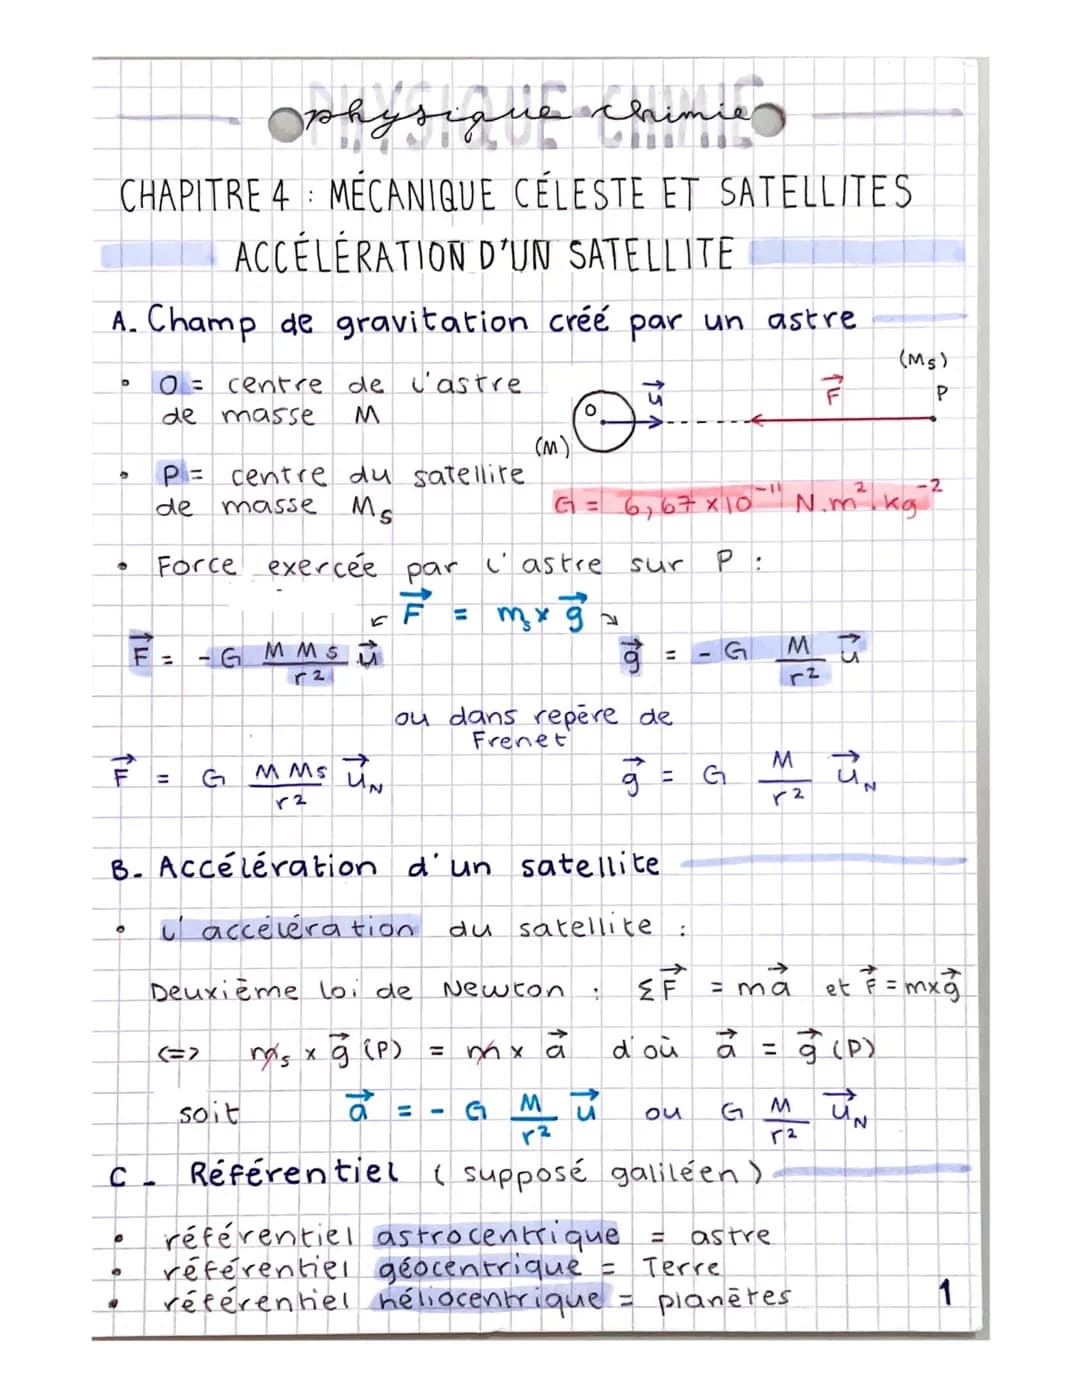 PHYSIQUE-CHIMIE
physique-chimie
CHAPITRE 4 : MÉCANIQUE CÉLESTE ET SATELLITES
ACCÉLÉRATION D'UN SATELLITE
A. Champ de gravitation créé par un astre
• O = centre de l'astre
de masse M
• P = centre du satellite
de masse Ms
(M)
O
u⃗
F⃗
(Ms)
P
G = 6,67 × 10⁻¹¹ N.m².kg⁻²
• Force exercée par l'astre sur P :
↙ F⃗ = ms × g⃗ ↘
F⃗ = - G M Ms / r² u⃗ g⃗ = - G M / r² u⃗
ou dans repère de
Frenet
F⃗ = G M Ms / r² u⃗N g⃗ = G M / r² u⃗N
B. Accélération d'un satellite
• l'accélération du satellite :
Deuxième loi de Newton : ΣF⃗ = ma⃗ et F⃗ = m×g⃗
<=> ms × g⃗ (P) = m × a⃗ d'où a⃗ = g⃗ (P)
soit a⃗ = - G M / r² u⃗ ou G M / r² u⃗N
C - Référentiel (supposé galiléen)
• référentiel astrocentrique = astre
• référentiel géocentrique = Terre
• référentiel héliocentrique = planètes
1